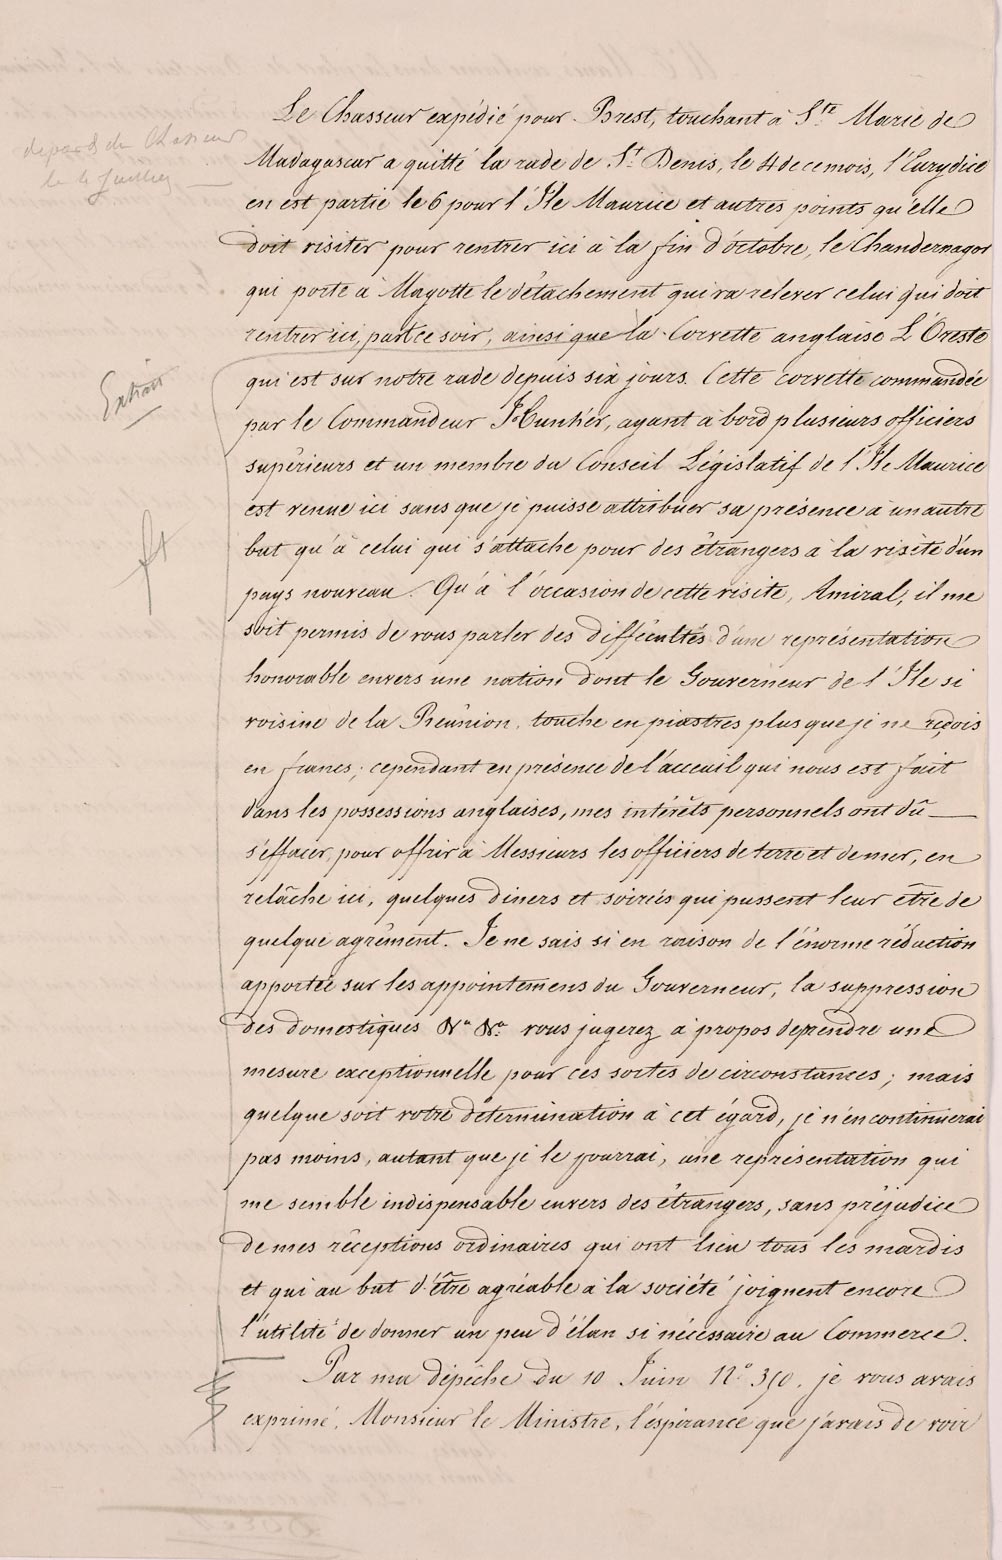 Le Chasseur expédié pour Brest, touchant à Ste Marie de
depart du Chasseur
Madagascar a quitté la rade de St Denis, le 4 de ce mois, l'Eurydice
le 4 Juillet
en est partie le 6 pour l'Ile Maurice et autres points qu'elle
doit visiter pour rentrer ici à la fin d'octobre, le Chandernagor
qui porte à Mayotte le détachement qui va relever celui qui doit
rentrer ici, part ce soir, ainsi que la Corvette anglaise L'Oreste
Extrait
qui est sur notre rade depuis six jours. Cette corvette commandée
par le Commandeur, ayant à bord plusieurs officiers
supérieurs et un membre du Conseil Législatif de l'Ile Maurice
est venue ici sans que je puisse attribuer sa présence à un autre
but qu'à celui qui s'attache pour des étrangers à la visite d'un
pays nouveau. Qu'à l'occasion de cette visite, Amiral, il me
soit permis de vous parler des difficultés d'une représentation
honorable envers une nation dont le Gouverneur de l'Ile si
voisine de la Réunion, touche en piastres plus que je ne reçois
en francs; cependant en présence de l'acceuil qui nous est fait
dans les possessions anglaises, mes intérêts personnels ont dû
s'effacer, pour offrir à Messieurs les officiers de terre et de mer, en
relâche ici, quelques diners et soirées qui pussent leur être de
quelque agrément. Je ne sais si en raison de l'énorme réduction
apportée sur les appointemens du Gouverneur, la suppression
des domestiques &a &a vous jugerez à propos de prendre une
mesure exceptionnelle pour ces sortes de circonstances; mais
quelque soit votre détermination à cet égard, je n'en continuerai
pas moins, autant que je le pourrai, une représentation qui
me semble indispensable envers des étrangers, sans préjudice
de mes réceptions ordinaires qui ont lieu tous les mardis
et qui au but d'être agréable à la société joignent encore
l'utilité de donner un peu d'élan si nécessaire au Commerce.
Par ma dépêche du 10 Juin No 350. je vous avais
exprimé, Monsieur le Ministre, l'espérance que j'avais de voir